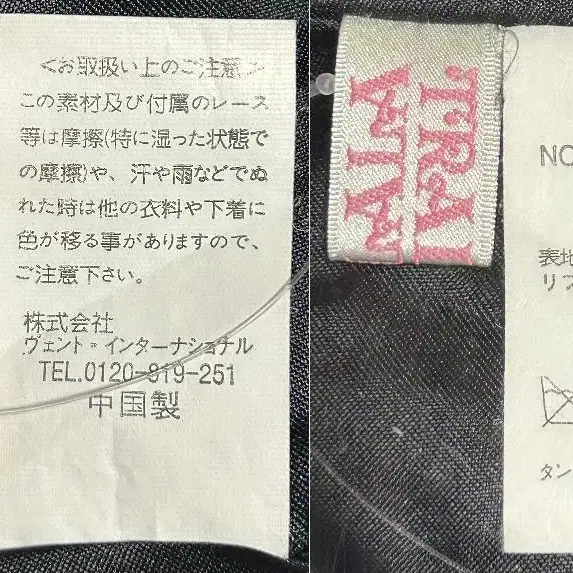 <お取扱い上のご注意>
この素材及び付属のレース
等は摩擦(特に湿った状態で
の摩擦)や、汗や雨などでぬ
れた時は他の衣料や下着に
色が移る事がありますので、
ご注意下さい。
株式会社
ヴェント・インターナショナル
TEL.0120-919-251
中国製
TRAI
VIV
NO
表地
リフ
タン